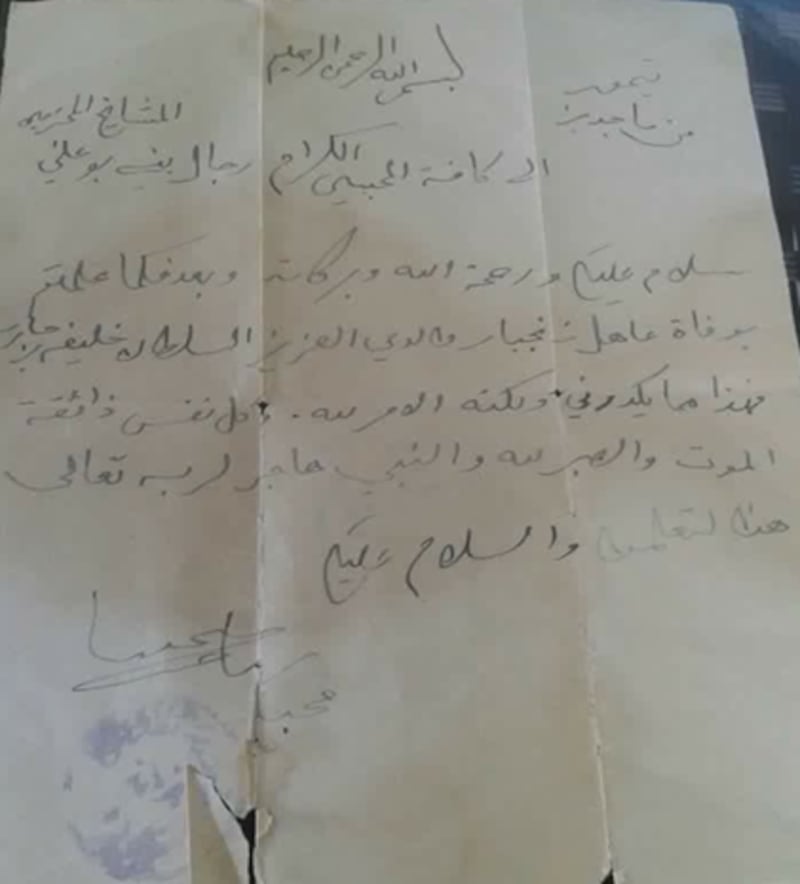 بسم الله الرحمن الرحيم
من ماجد بن
تيمور
المشايخ المحترمين
الى كافة المحبين الكرام رجال بني بو علي
سلام عليكم ورحمة الله وبركاته وبعد فكما علمتم
بوفاة عاهل زنجبار والدي العزيز السلطان خليفه بن حارب
فهذا مما يكدرني ولكنه الامر لله . وكل نفس ذائقة
الموت والصبر لله والنبي هاجر لربه تعالى
هذا لتعلموا والسلام عليكم
محبكم